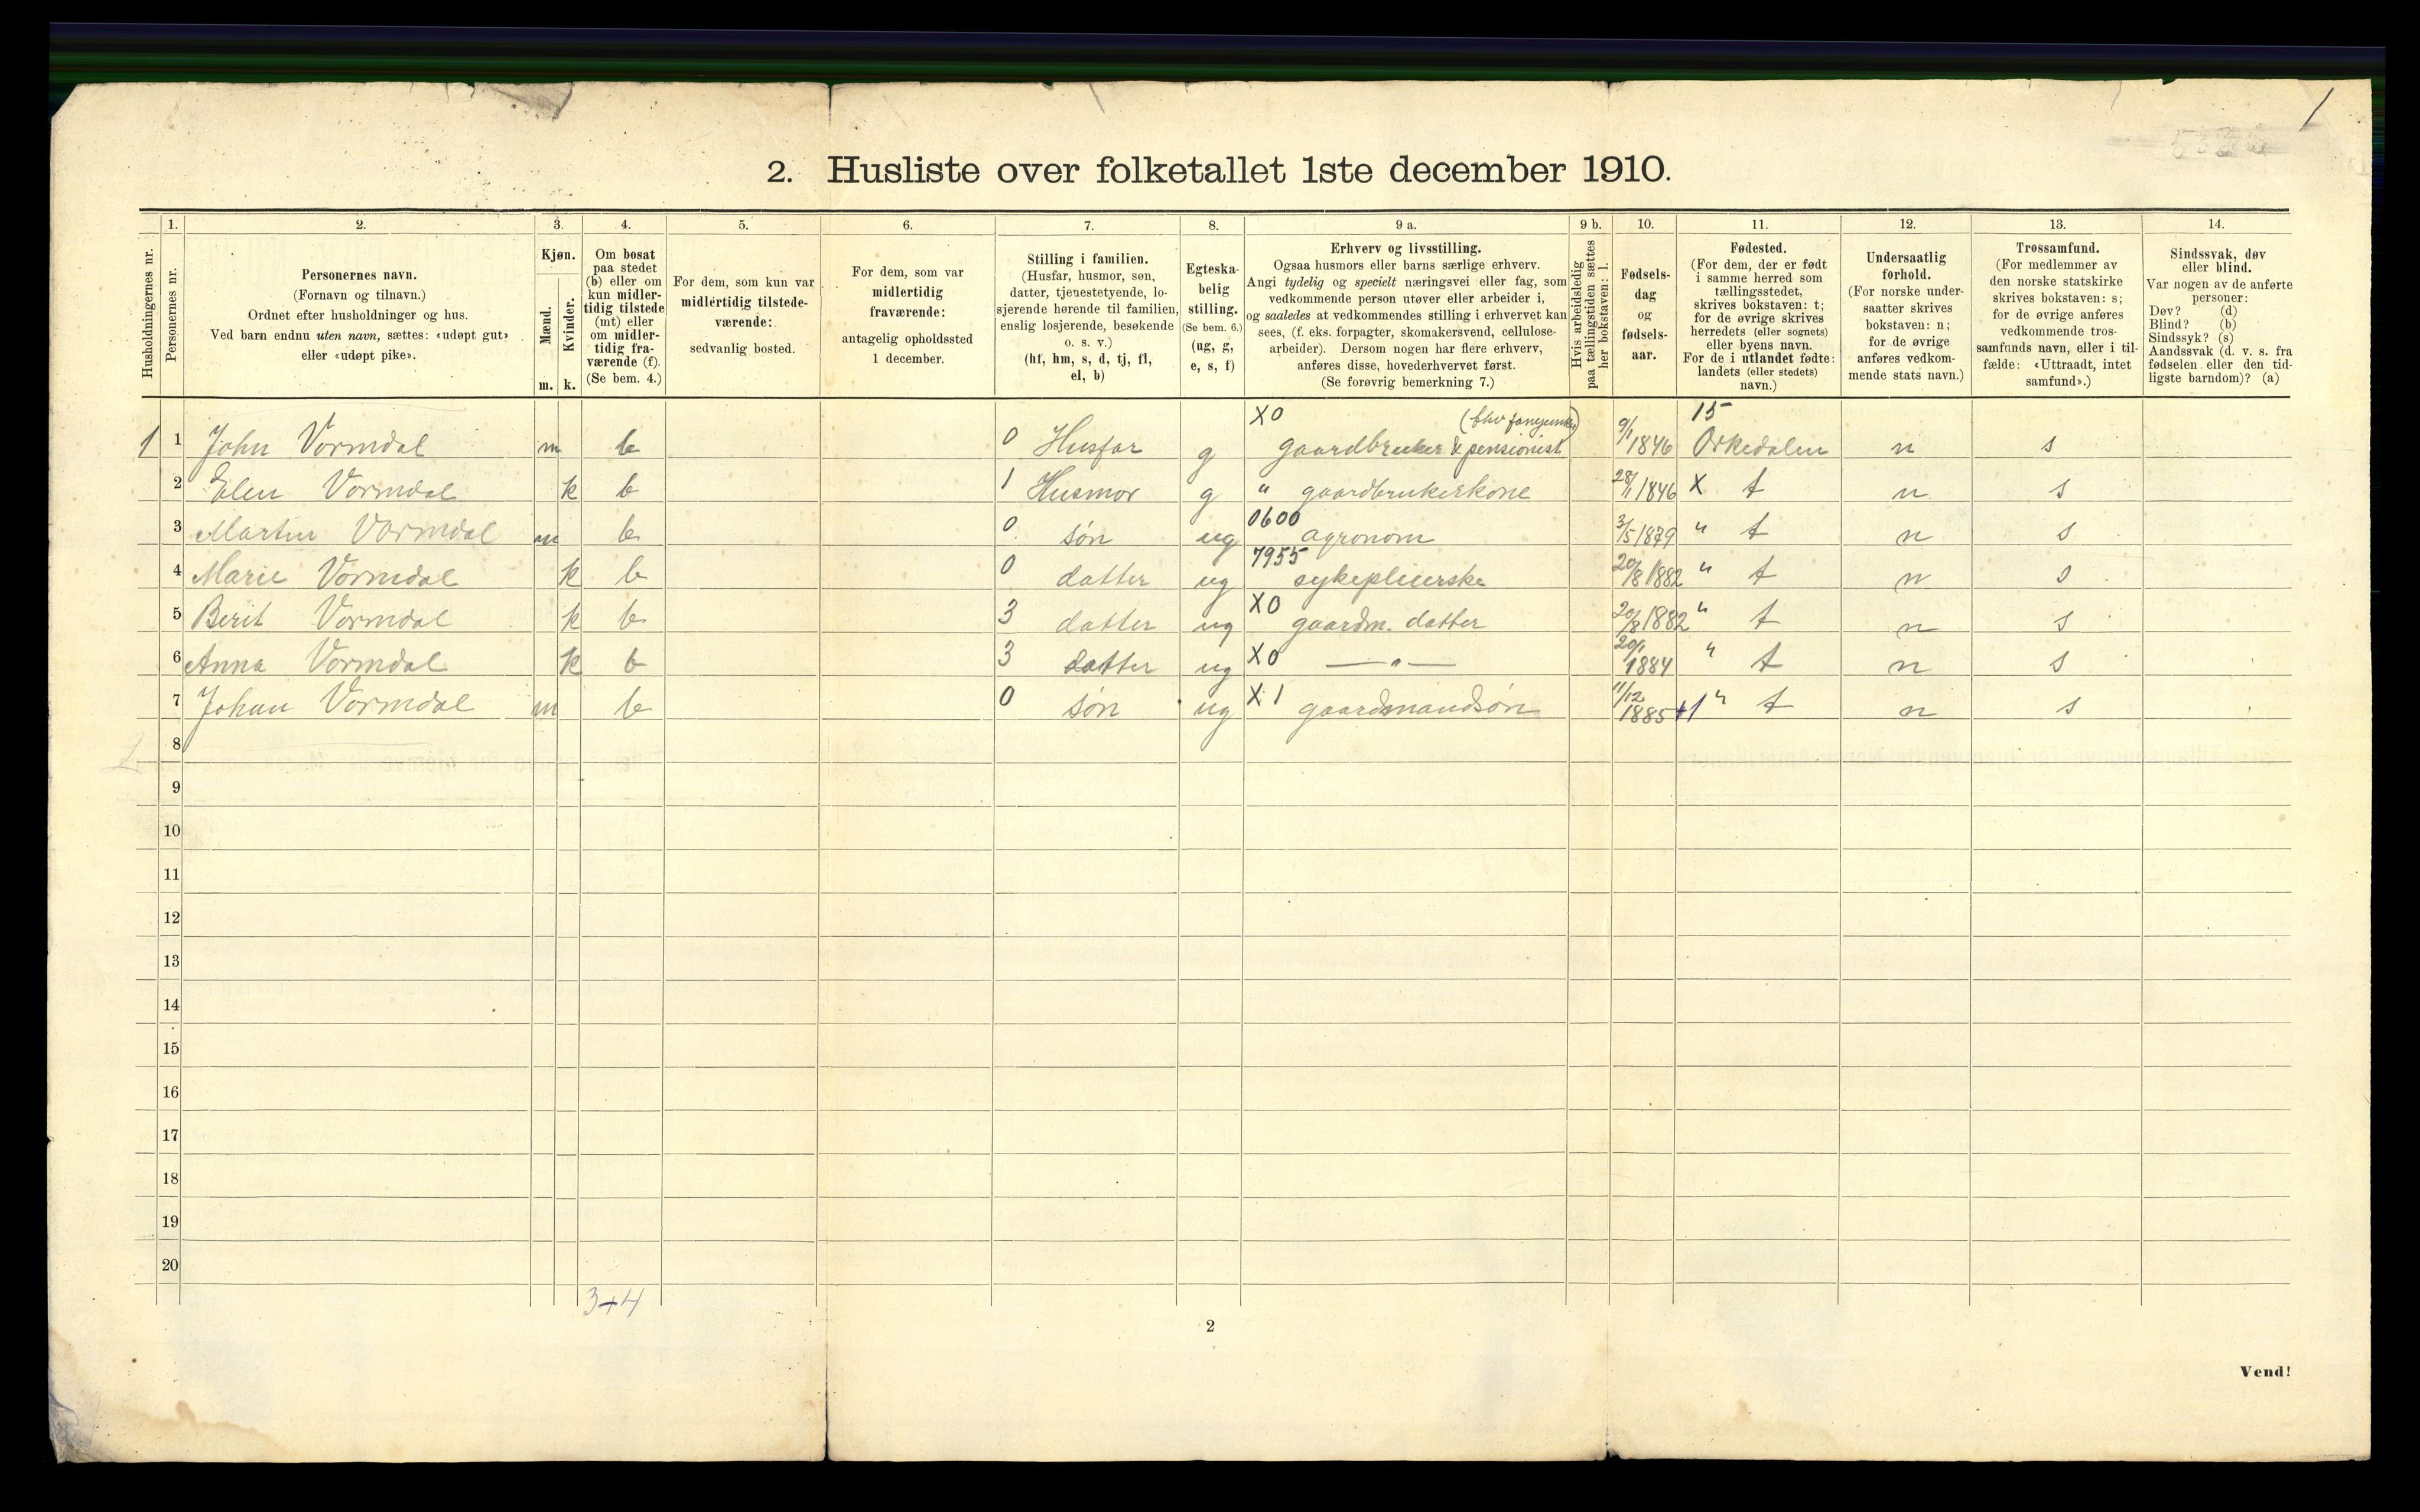 1
2. Husliste over folketallet 1ste december 1910.
1. 2. 3. 4. 5. 6. 7. 8. 9 a. 9 b. 10. 11. 12. 13. 14.
Husholdningernes nr.
Personernes nr.
Personernes navn.
(Fornavn og tilnavn.)
Ordnet efter husholdninger og hus.
Ved barn endnu uten navn, sættes: «udøpt gut»
eller «udøpt pike».
Kjøn.
Mænd.
m.
Kvinder.
k.
Om bosat
paa stedet
(b) eller om
kun midler-
tidig tilstede
(mt) eller
om midler-
tidig fra-
værende (f).
(Se bem. 4.)
For dem, som kun var
midlertidig tilstede-
værende:
sedvanlig bosted.
For dem, som var
midlertidig
fraværende:
antagelig opholdssted
1 december.
Stilling i familien.
(Husfar, husmor, søn,
datter, tjenestetyende, lo-
sjerende hørende til familien,
enslig losjerende, besøkende
o. s. v.)
(hf, hm, s, d, tj, fl,
el, b)
Egteska-
belig
stilling.
(Se bem. 6.)
(ug, g,
e, s, f)
Erhverv og livsstilling.
Ogsaa husmors eller barns særlige erhverv.
Angi tydelig og specielt næringsvei eller fag, som
vedkommende person utøver eller arbeider i,
og saaledes at vedkommendes stilling i erhvervet kan
sees, (f. eks. forpagter, skomakersvend, cellulose-
arbeider). Dersom nogen har flere erhverv,
anføres disse, hovederhvervet først.
(Se forøvrig bemerkning 7.)
Hvis arbeidsledig
paa tællingstiden sættes
her bokstaven: l.
Fødsels-
dag
og
fødsels-
aar.
Fødested.
(For dem, der er født
i samme herred som
tællingsstedet,
skrives bokstaven: t;
for de øvrige skrives
herredets (eller sognets)
eller byens navn.
For de i utlandet fødte:
landets (eller stedets)
navn.)
Undersaatlig
forhold.
(For norske under-
saatter skrives
bokstaven: n;
for de øvrige
anføres vedkom-
mende stats navn.)
Trossamfund.
(For medlemmer av
den norske statskirke
skrives bokstaven: s;
for de øvrige anføres
vedkommende tros-
samfunds navn, eller i til-
fælde: «Uttraadt, intet
samfund».)
Sindssvak, døv
eller blind.
Var nogen av de anførte
personer:
Døv? (d)
Blind? (b)
Sindssyk? (s)
Aandssvak (d. v. s. fra
fødselen eller den tid-
ligste barndom)? (a)
X0 15
1 1 John Vormdal m b 0 Husfar g gaardbruker & pensionist 9/1 1846 Orkedalen n s
2 Elen Vormdal k b 1 Husmor g " gaardbrukerkone 28/1 1846 X t n s
3 Martin Vormdal m b 0 søn ug 0600 agronom 3/5 1879 " t n s
4 Marie Vormdal k b 0 datter ug 7955 sykepleierske 20/8 1882 " t n s
5 Berit Vormdal k b 3 datter ug X0 gaardm. datter 20/8 1882 " t n s
6 Anna Vormdal k b 3 datter ug X0 — " — 20/1 1884 " t n s
7 Johan Vormdal m b 0 søn ug X1 gaardmandsøn 11/12 1885 +1 " t n s
8
9
10
11
12
13
14
15
16
17
18
19
20
3+4
2
Vend!